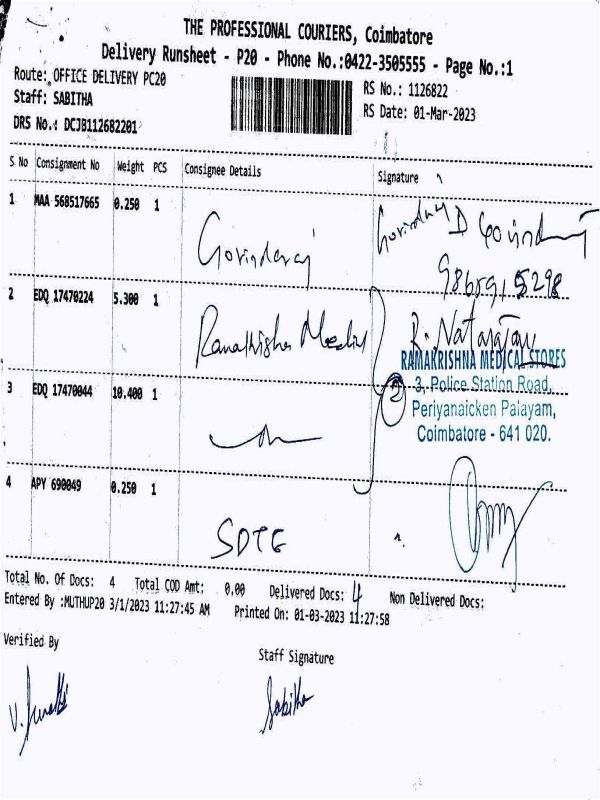 THE PROFESSIONAL COURIERS, Coimbatore
Delivery Runsheet - P20 - Phone No.:0422-3505555 - Page No.:1
Route: OFFICE DELIVERY PC20
Staff: SABITHA
DRS No.: DCJB112682201
RS No.: 1126822
RS Date: 01-Mar-2023
S No Consignment No Weight PCS Consignee Details Signature
1 MAA 568517665 0.250 1
Govindaraj
D Govindaraj
2 EDQ 17470224 5.300 1
R. Natarajan
RAMAKRISHNA MEDICAL STORES
3, Police Station Road,
Periyanaicken Palayam,
Coimbatore - 641 020.
2
3 EDQ 17470044 10.400 1
4 APY 690049 0.250 1
Total No. Of Docs: 4 Total COD Amt: 0.00 Delivered Docs: 4 Non Delivered Docs:
Entered By :MUTHUP20 3/1/2023 11:27:45 AM Printed On: 01-03-2023 11:27:58
Verified By
Staff Signature
Sabitha